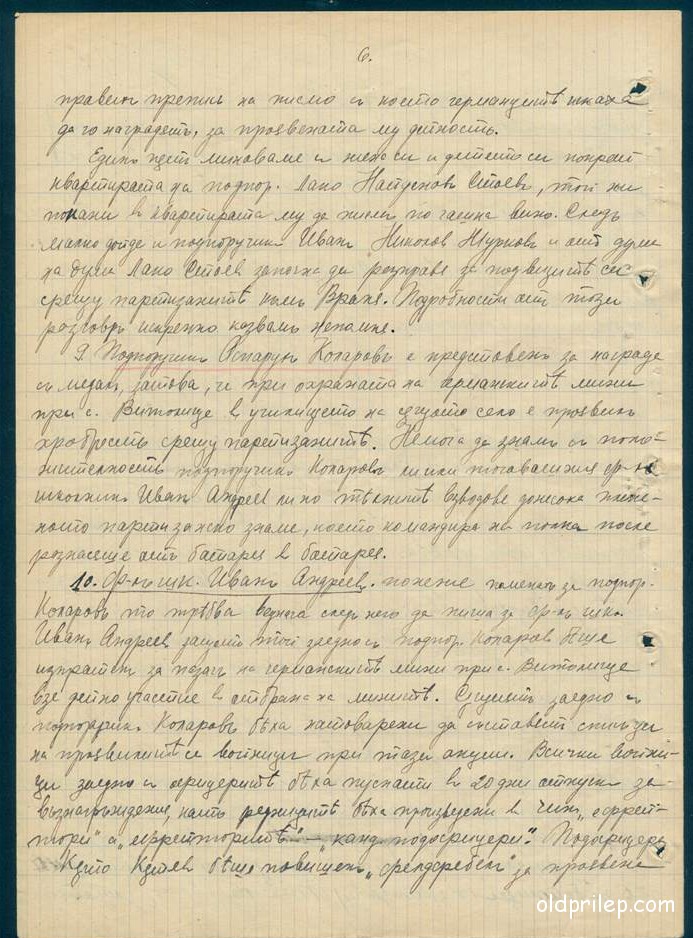 6.
препис на писмо с което германците искаха
да го наградетъ, за проявената му дейность.
Единъ пѫть минаваме с жена си и детето си покрай
квартирата на подпор. Лако Стоевъ, той ни
покани в квартирата му да пием по чашка вино. Следъ
малко дойде и подпоручик Иванъ Николов и от дума
на дума Лако Стоев започна да разправя за подвизитѣ си
срещу партизанитѣ към Враня. Подробности от този
разговоръ искрено казвамъ непомня.
9. Подпоручик Аспарухъ Кожаровъ е представенъ за награда
с медал, затова, че при охраната на германскитѣ мини
при с. Витолище в училището на същото село е проявилъ
храбрость срещу партизанитѣ. Немога да знамъ с поло-
жителность подпоручик Кожаровъ ли или тогавашния ф-ръ
школникъ Иванъ Андреев ли но тѣхнитѣ взводове донесоха
партизанско знаме, което командира на полка после
разнасяше отъ батарея в батарея.
10. Ф-ръ шк. Иванъ Андреев. понеже поменахъ за подпор.
Кожаровъ то трѣбва веднага след него да пиша за ф-ръ шк.
Иванъ Андреев защото той заедно с подпор. Кожаров бѣше
изпратен за на германскитѣ мини при с. Витолище
взе дейно участие в отбрана на минитѣ. Същиятъ заедно с
подпоручик Кожаровъ бѣха натоварени да съставят списъци
на проявилитѣ се войници при тази акция. Всички войни-
ци заедно с офицеритѣ бѣха пуснати в 20 дни отпуск за
възнаграждение, като редницитѣ бѣха произведени в чин „ефрей-
тори" а „ефрейторитѣ" – „канд. подофицери". Подофицеръ
Кѫтев бѣше повишенъ „фелдфебел" за проявена
oldprilep.com